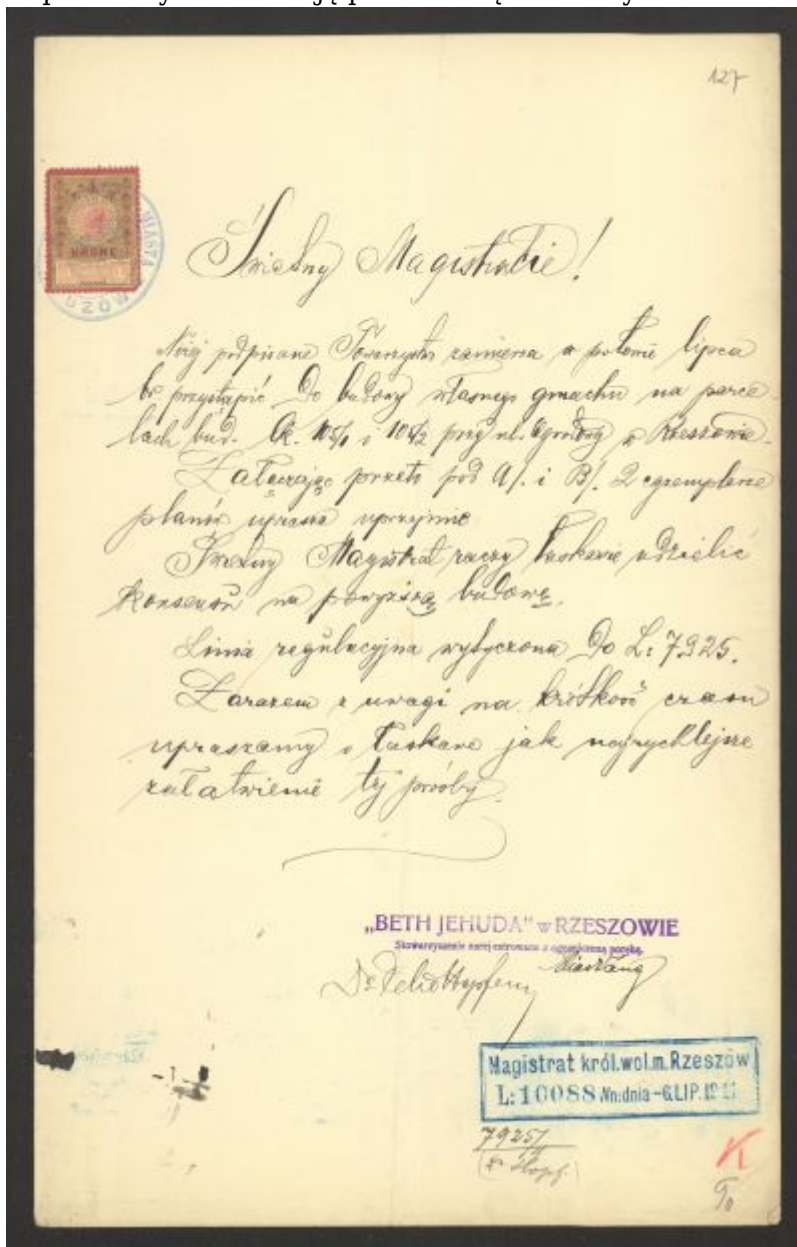 127
Świetny Magistracie!
Niżej podpisane Towarzystwo zamierza w połowie lipca
br przystąpić do budowy własnego gmachu na parce-
lach bud. lk. i przy ul. w Rzeszowie.
Załączając przeto pod A/. i B/. 2 egzemplarze
planów uprasza uprzejmie
Świetny Magistrat raczy łaskawie udzielić
konsensu na powyższą budowę.
Linia regulacyjna wytyczona do L: 7925.
Zarazem z uwagi na krótkość czasu
upraszamy o łaskawe jak najrychlejsze
załatwienie tej prośby
„BETH JEHUDA" w RZESZOWIE
Stowarzyszenie zarejestrowane z ograniczoną poręką.
Dr
Magistrat król.wol.m.Rzeszów
L:10088 Wn:dnia -6.LIP.19
7925/
MIASTA
KRONE